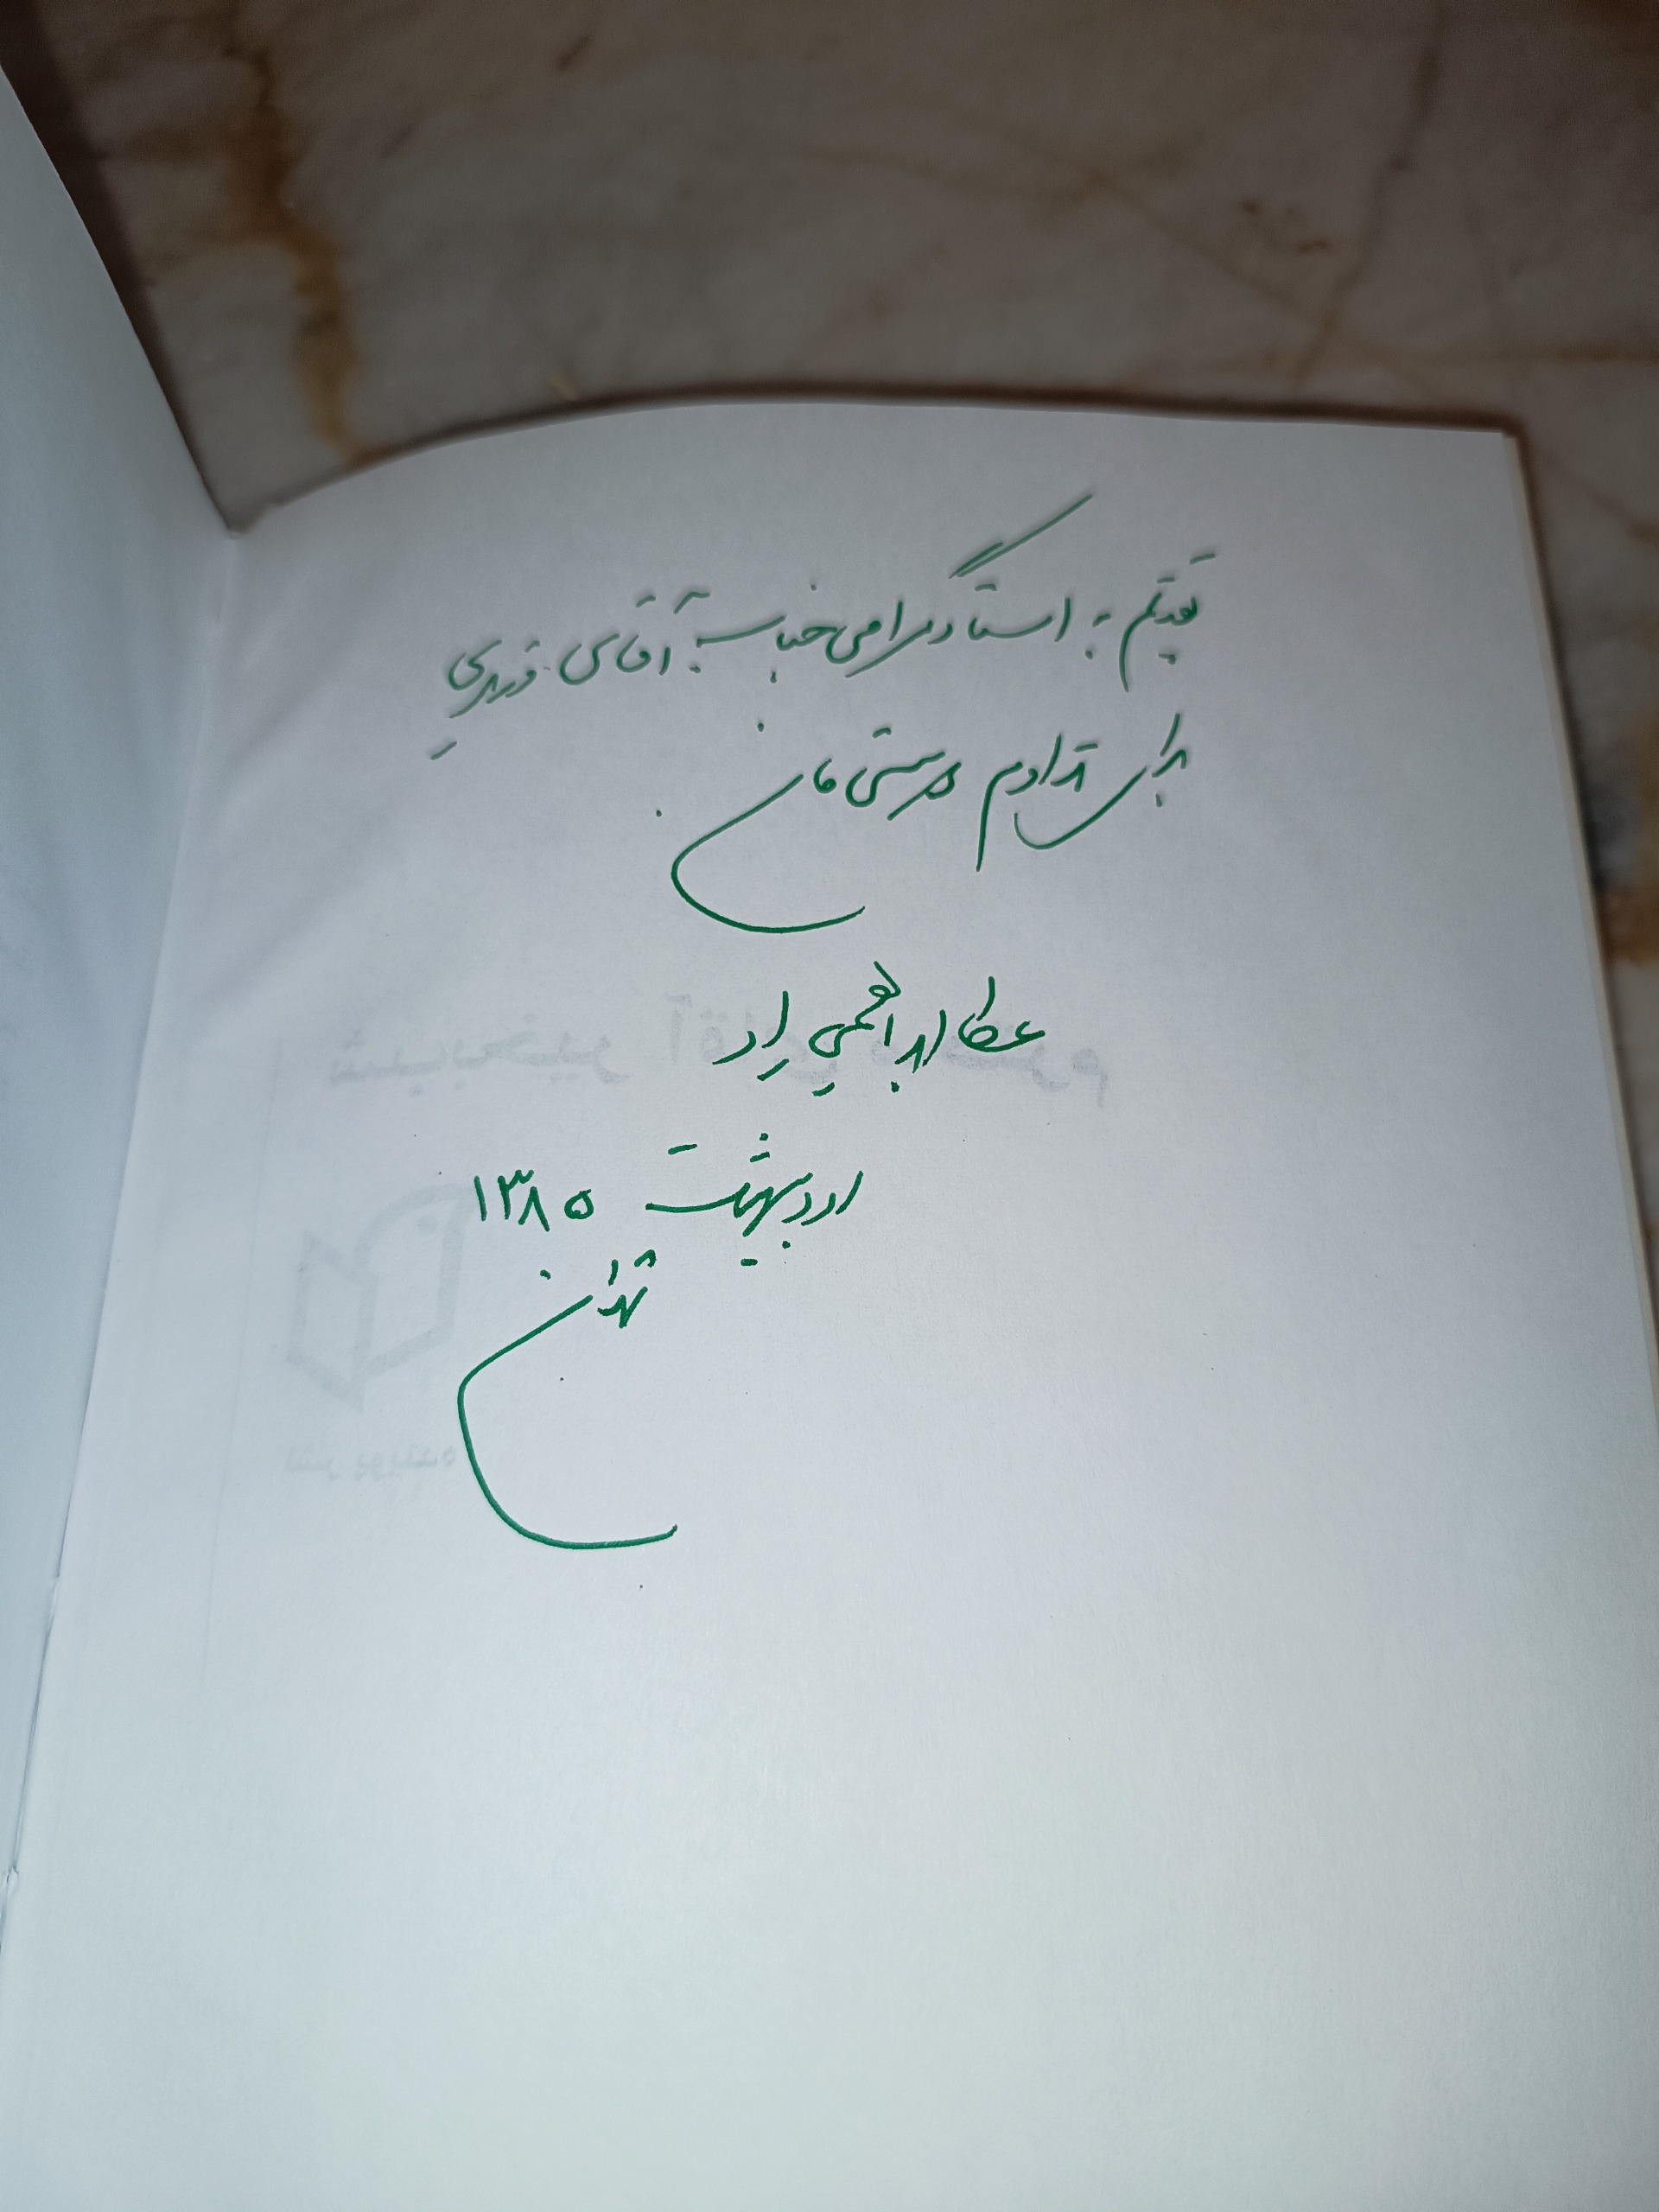 تقدیم به استاد گرامی جناب آقای
برای تداوم دوستی مان
عطا ابراهیمی راد
اردیبهشت ۱۳۸۵
تهران